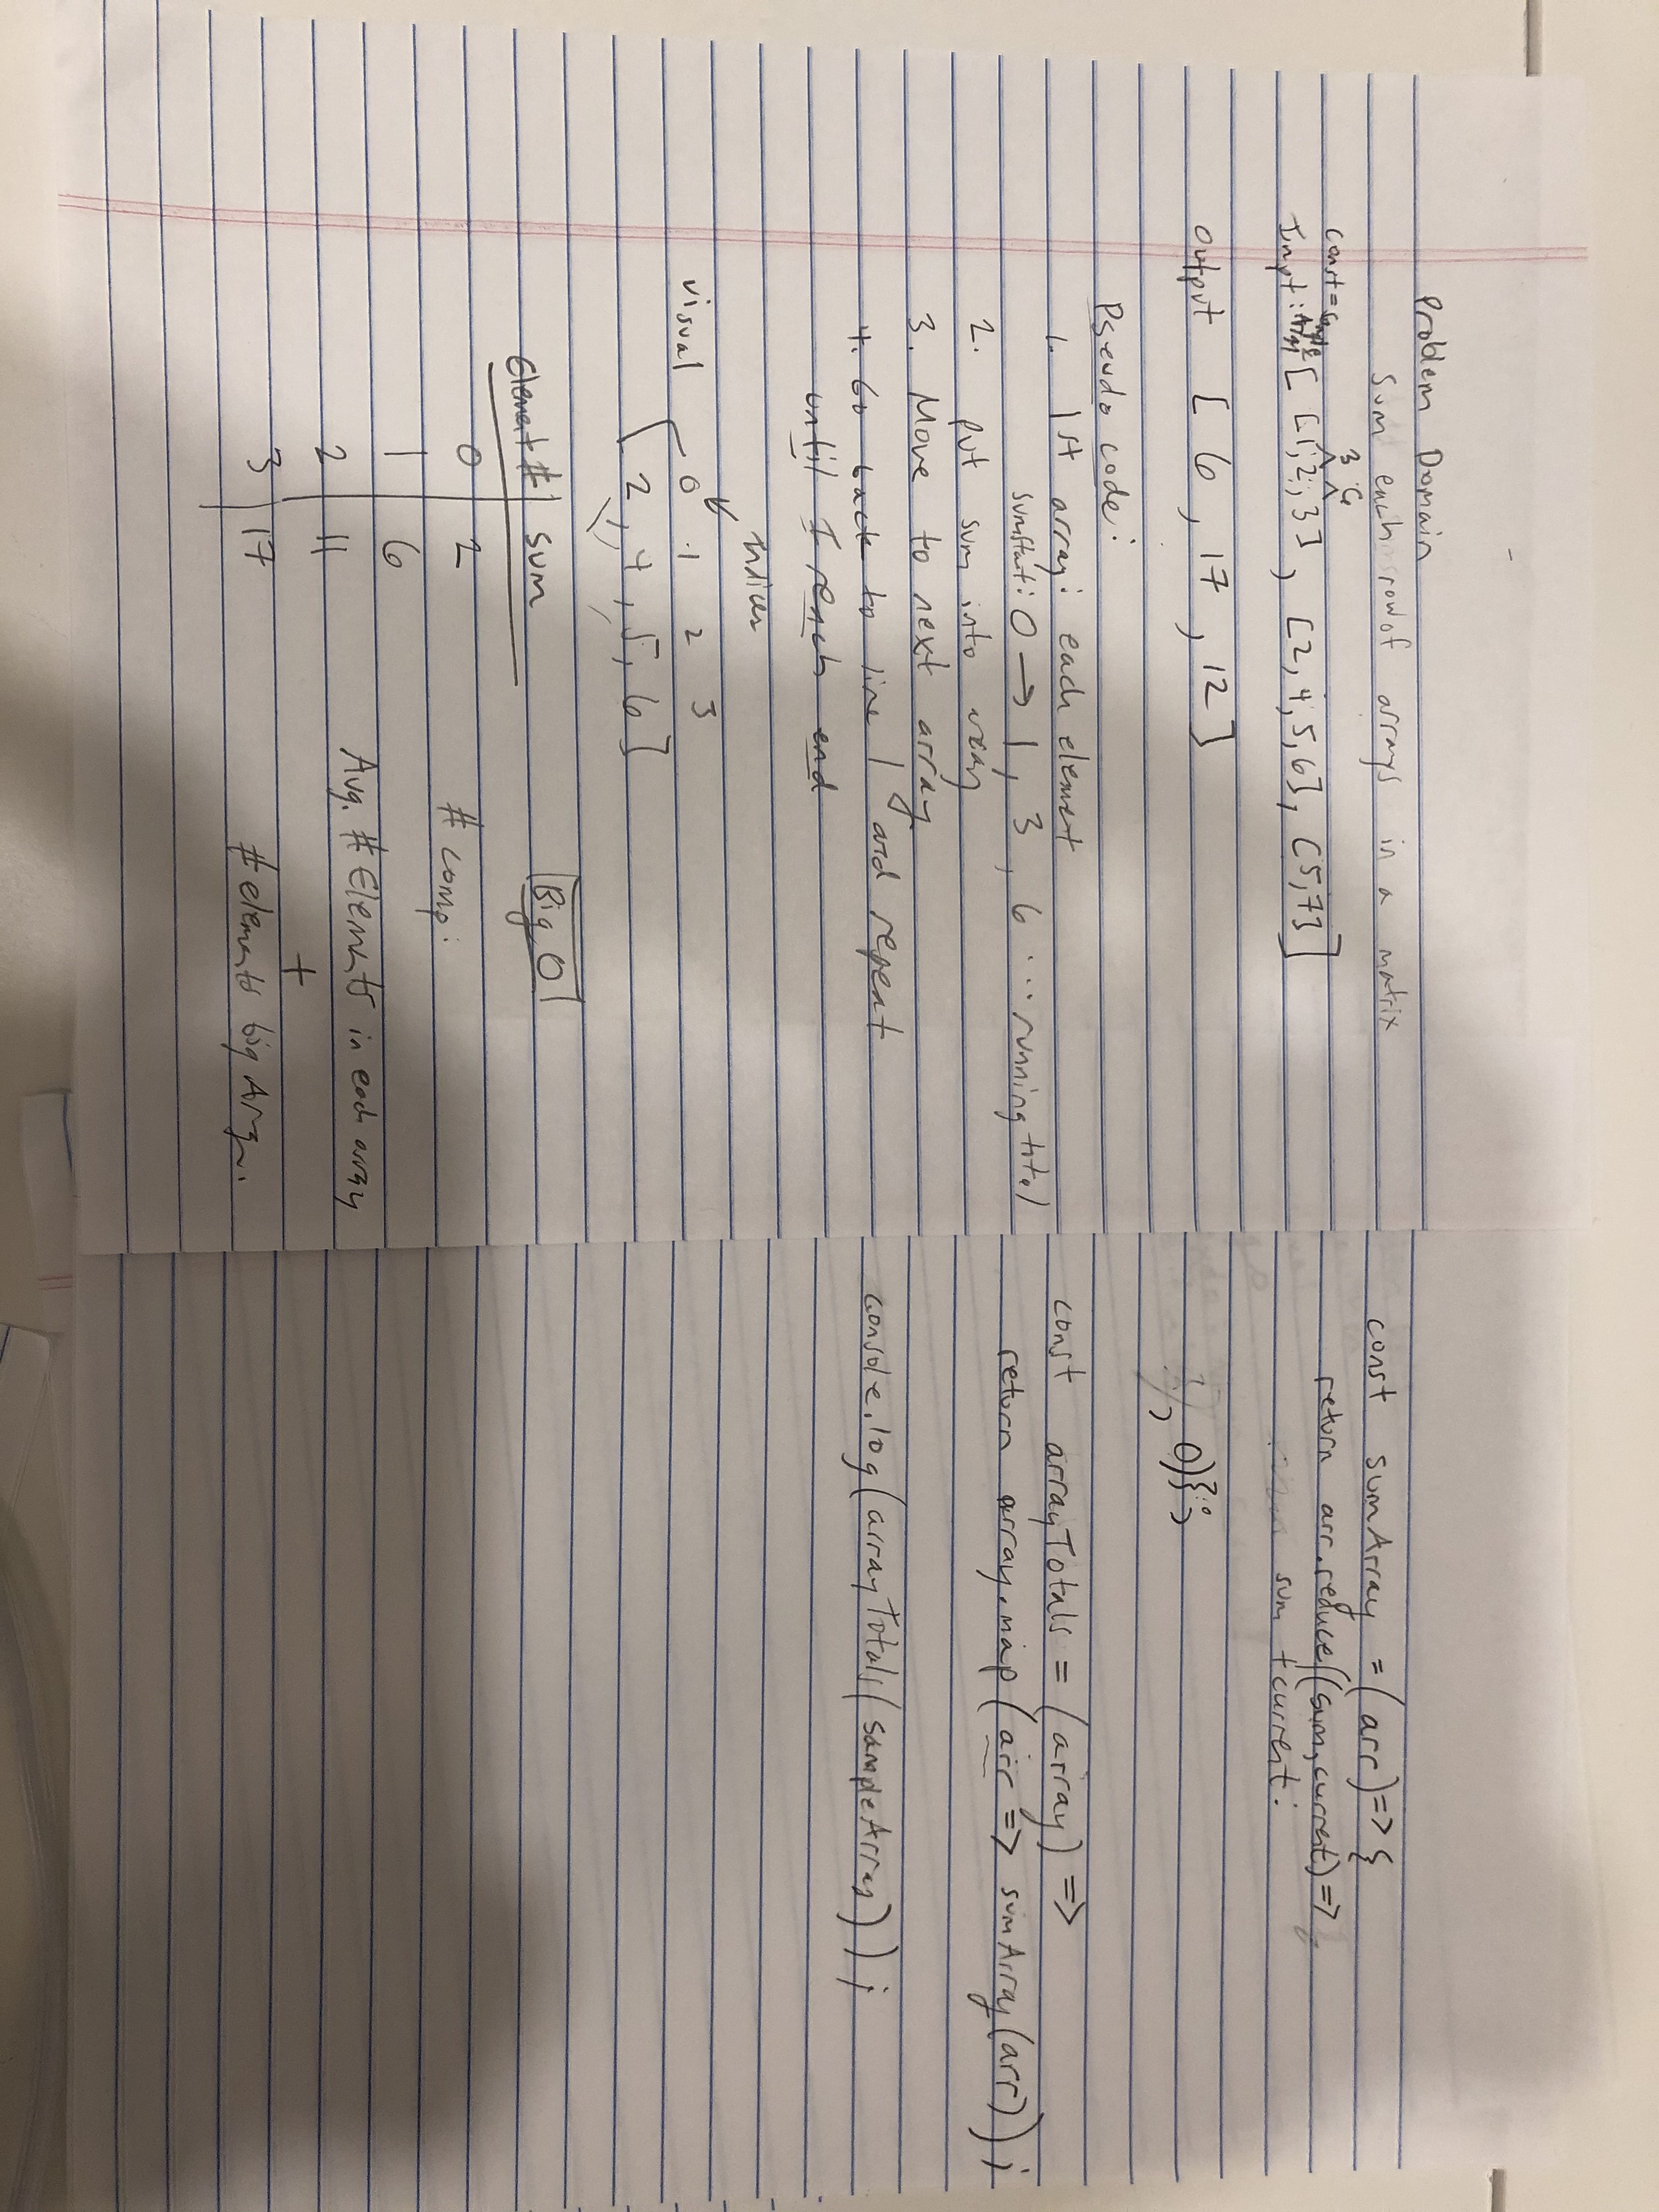 Problem Domain
sum each row of arrays in a matrix
3 6
const = sample
Inpt: Array [ [1,2,3], [2,4,5,6], [5,7] ]
output [ 6, 17, 12]
Pseudo code:
1. 1st array: each element
sum start: 0 → 1, 3, 6 ... running total
2. put sum into array
3. Move to next array
4. Go back to line 1 and repeat
until I reach end
Indices
visual 0 1 2 3
[2, 4, 5, 6]
Element # sum
0 2
1 6
2 11
3 17
Big O
# comp:
Avg. # Elements in each array
+
# elements big Array.
const sumArray = (arr) => {
return arr.reduce((sum, current) =>
sum + current;
, 0)};
const arrayTotals = (array) =>
return array.map(arr => sumArray(arr));
console.log(arrayTotals(sampleArray));